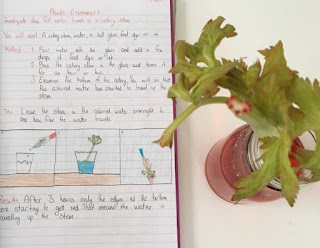 Plants - Experiment 1
Investigate how does water travel up a celery stem.
You will need: A celery stem, water, a tall glass, food dye or ink
Method 1. Pour water into the glass and add a few
drops of food dye or ink.
2. Place the celery stem in the glass and leave it
for an hour or two.
3. Examine the bottom of the celery. You will see how
the coloured water has started to travel up the
stem.
Try Leave the stem in the coloured water overnight to
see how far the water travels.
1 2 3
Results After 3 hours only the edges at the bottom
were starting to get red. That means the water is
travelling up the stem.